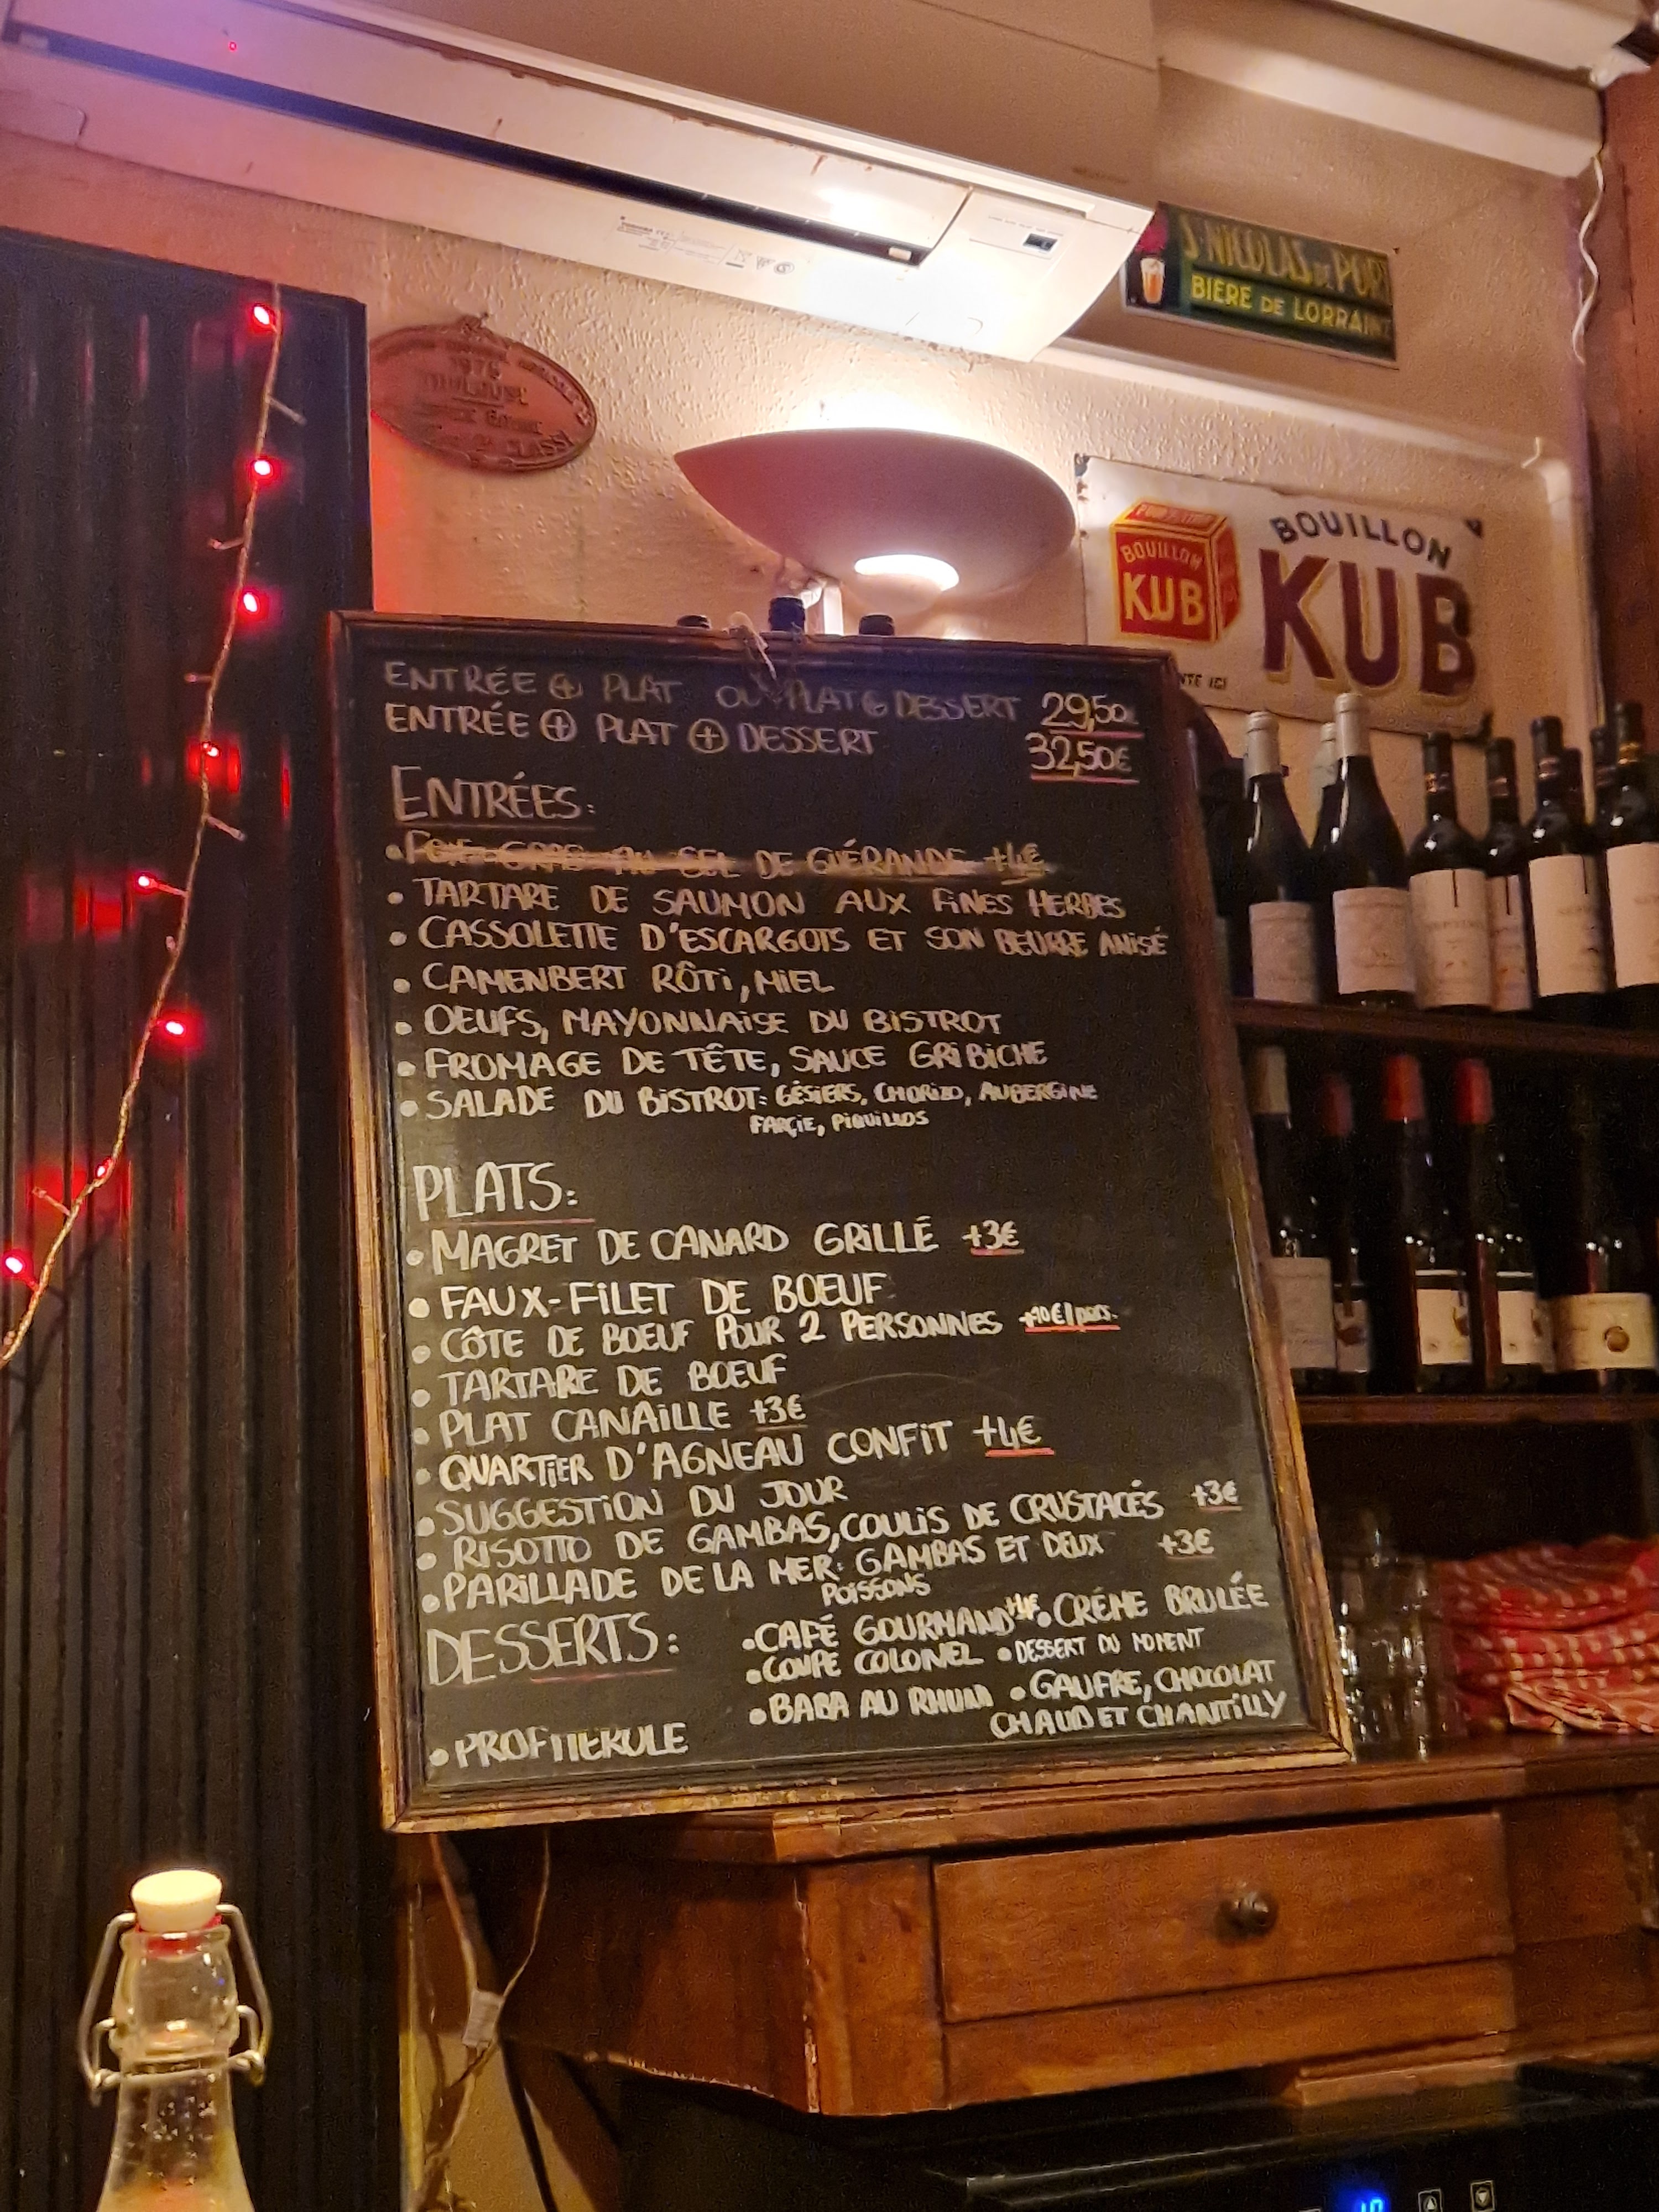 S^T NICOLAS DE PORT
BIÈRE DE LORRAINE
BOUILLON
KUB
BOUILLON
KUB
ENTRÉE + PLAT OU PLAT & DESSERT 29,50€
ENTRÉE + PLAT + DESSERT 32,50€
ENTRÉES:
• AU SEL DE GUÉRANDE +4€
• TARTARE DE SAUMON AUX FINES HERBES
• CASSOLETTE D'ESCARGOTS ET SON BEURRE ANISÉ
• CAMENBERT RÔTI, MIEL
• OEUFS, MAYONNAISE DU BISTROT
• FROMAGE DE TÊTE, SAUCE GRIBICHE
• SALADE DU BISTROT: GÉSIERS, CHORIZO, AUBERGINE
FARÇIE, PIQUILLOS
PLATS:
• MAGRET DE CANARD GRILLÉ +3€
• FAUX-FILET DE BOEUF
• CÔTE DE BOEUF POUR 2 PERSONNES +10€/pers.
• TARTARE DE BOEUF
• PLAT CANAILLE +3€
• QUARTIER D'AGNEAU CONFIT +4€
• SUGGESTION DU JOUR
• RISOTTO DE GAMBAS, COULIS DE CRUSTACÉS +3€
• PARILLADE DE LA MER: GAMBAS ET DEUX +3€
POISSONS
DESSERTS:
• CAFÉ GOURMAND • CRÉME BRULÉE
• COUPE COLONEL • DESSERT DU MOMENT
• BABA AU RHUM • GAUFRE, CHOCOLAT
CHAUD ET CHANTILLY
• PROFITEROLE